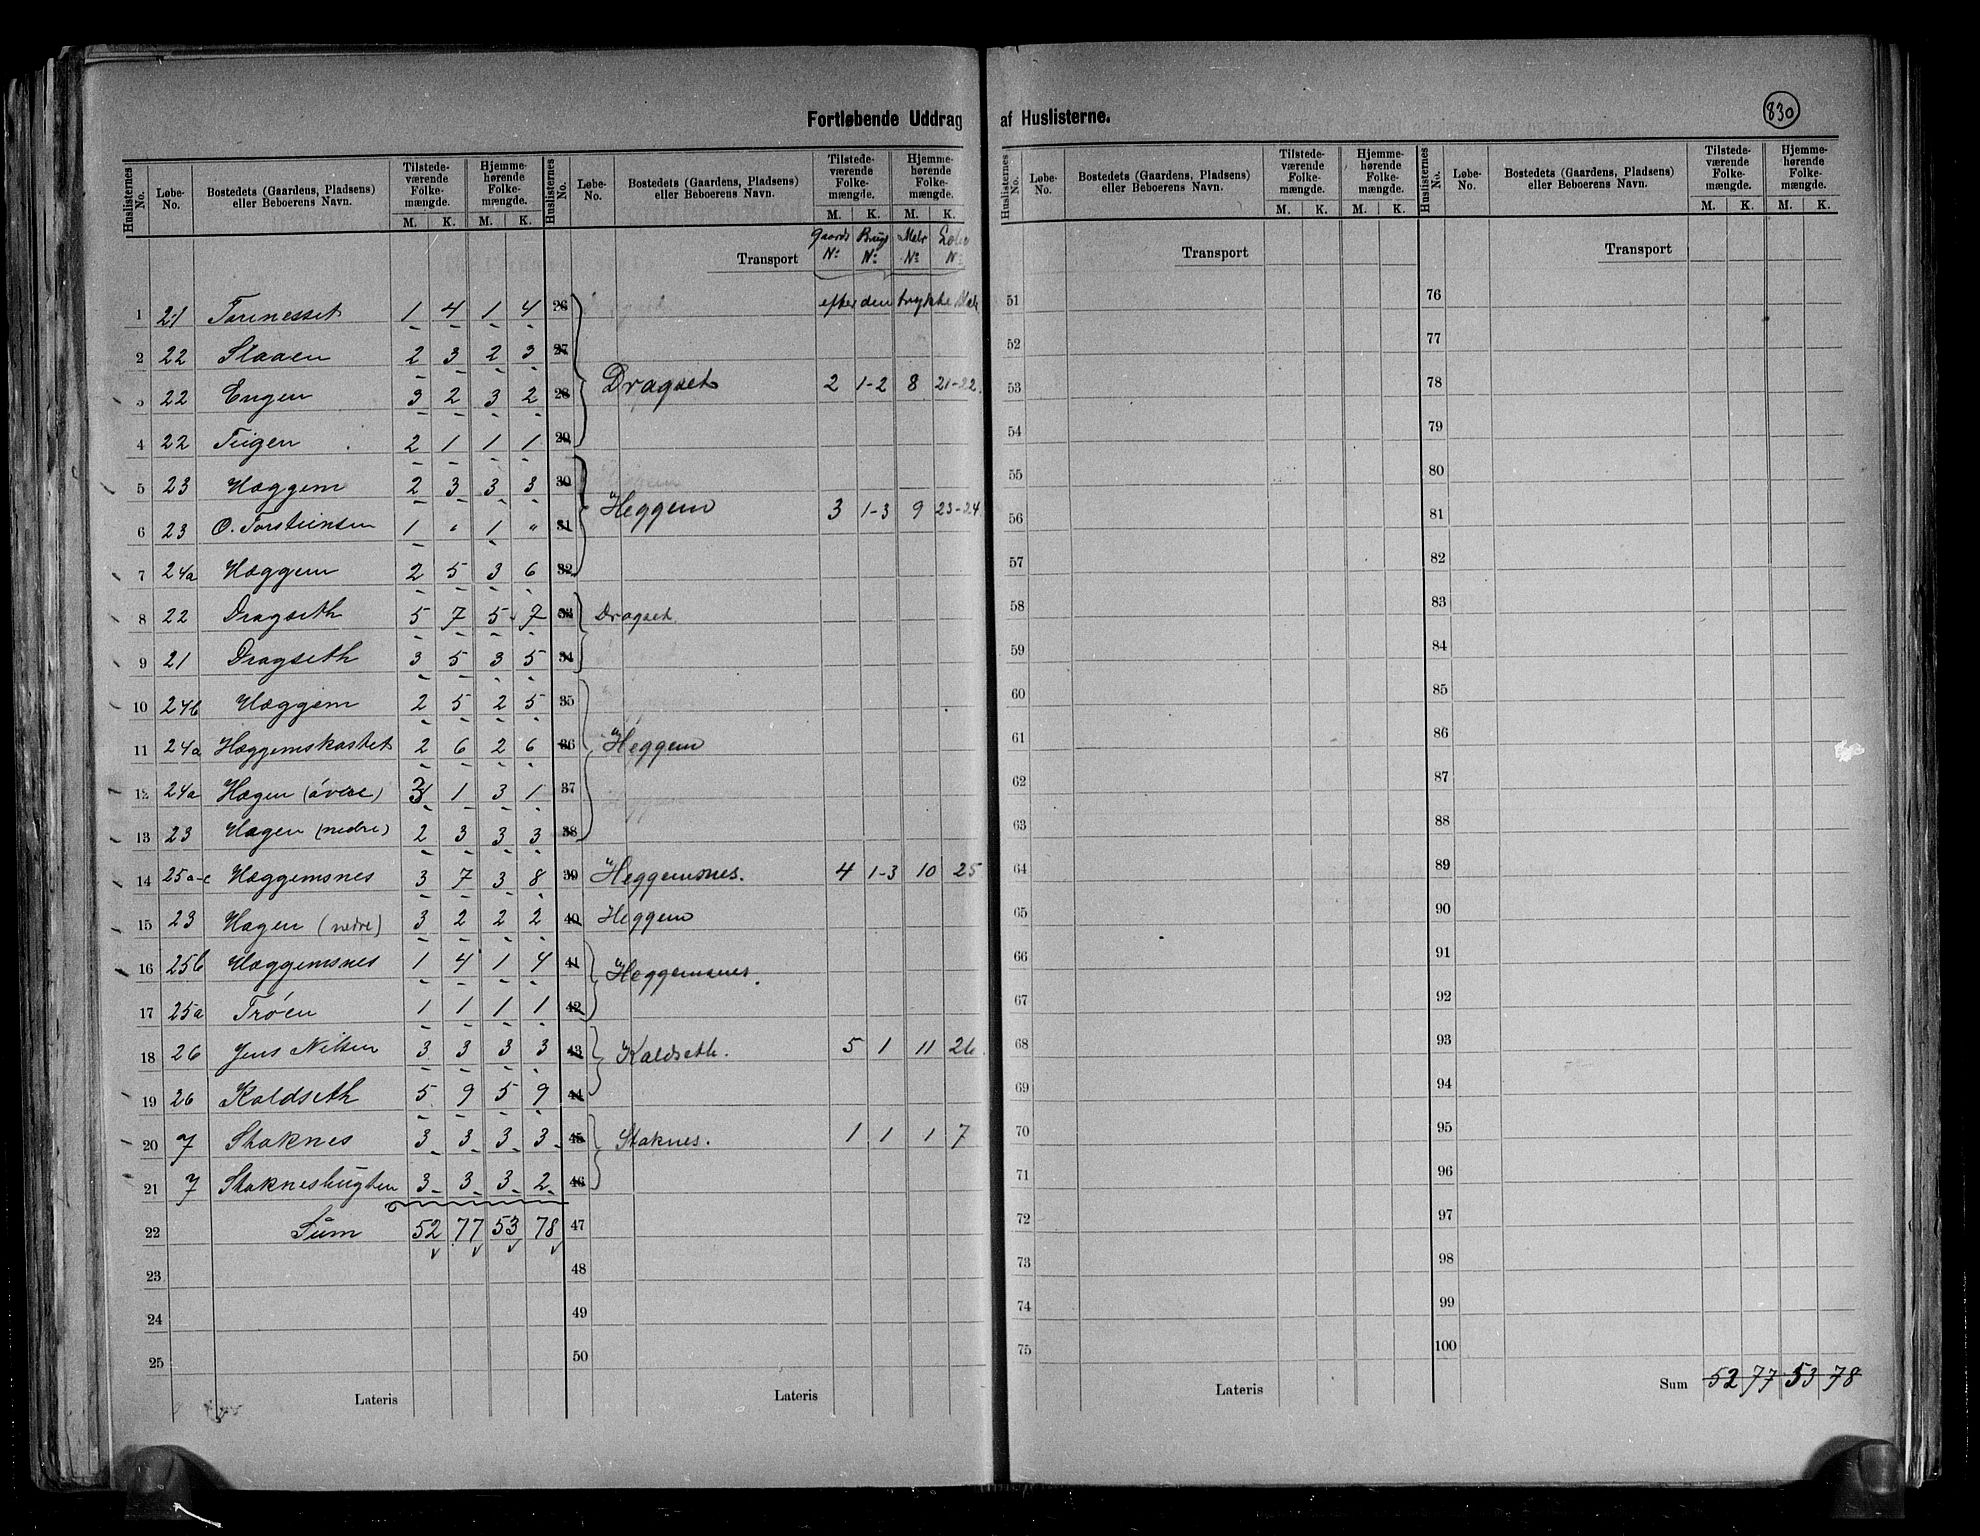 Fortløbende Uddrag af Huslisterne.
830
Huslisternes No. Løbe-No. Bostedets (Gaardens, Pladsens) eller Beboerens Navn. Tilstedeværende Folkemængde. M. K. Hjemmehørende Folkemængde. M. K.
1 21 Torenesset 1 4 1 4
2 22 Slaaen 2 3 2 3
3 22 Engen 3 2 3 2
4 22 Teigen 2 1 1 1
5 23 Hæggem 2 3 3 3
6 23 O. Torsteinsen 1 " 1 "
7 24a Hæggem 2 5 3 6
8 22 Dragseth 5 7 5 7
9 21 Dragseth 3 5 3 5
10 24b Hæggem 2 5 2 5
11 24a Hæggemskastet 2 6 2 6
12 24a Hagen (övere) 3 1 3 1
13 23 Hagen (nedre) 2 3 3 3
14 25a-c Hæggemsnes 3 7 3 8
15 23 Hagen (nedre) 3 2 2 2
16 25b Hæggemsnes 1 4 1 4
17 25a Trøen 1 1 1 1
18 26 Jens Nilsen 3 3 3 3
19 26 Kaldseth 5 9 5 9
20 7 Staknes 3 3 3 3
21 7 Staknesbugten 3 3 3 2
22 Sum 52 77 53 78
23
24
25
Lateris
Huslisternes No. Løbe-No. Bostedets (Gaardens, Pladsens) eller Beboerens Navn. Tilstedeværende Folkemængde. M. K. Hjemmehørende Folkemængde. M. K.
Transport Gaards No: Brugs No: Matr No: Løbe No:
26 efter den trykte Matr
27
28 Dragset 2 1-2 8 21-22.
29
30
31 Heggem 3 1-3 9 23-24
32
33 Dragset.
34
35
36 Heggem
37
38
39 Heggemsnes. 4 1-3 10 25
40 Heggem
41 Heggemsnes.
42
43 Kaldseth. 5 1 11 26.
44
45 Staknes. 1 1 1 7
46
47
48
49
50
Lateris
Huslisternes No. Løbe-No. Bostedets (Gaardens, Pladsens) eller Beboerens Navn. Tilstedeværende Folkemængde. M. K. Hjemmehørende Folkemængde. M. K.
Transport
51
52
53
54
55
56
57
58
59
60
61
62
63
64
65
66
67
68
69
70
71
72
73
74
75
Lateris
Huslisternes No. Løbe-No. Bostedets (Gaardens, Pladsens) eller Beboerens Navn. Tilstedeværende Folkemængde. M. K. Hjemmehørende Folkemængde. M. K.
Transport
76
77
78
79
80
81
82
83
84
85
86
87
88
89
90
91
92
93
94
95
96
97
98
99
100
Sum 52 77 53 78